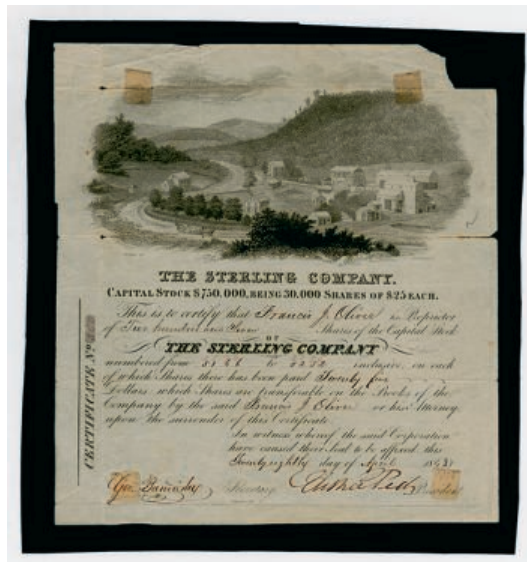 THE STERLING COMPANY.
CAPITAL STOCK $750,000, BEING 30,000 SHARES OF $25 EACH.
This is to certify that Francis J. Oliver is Proprietor
of Two hundred and Shares of the Capital Stock
OF
THE STERLING COMPANY
numbered from to inclusive, on each
of which Shares there has been paid Twenty five
Dollars, which Shares are transferable on the Books of the
Company by the said Francis J. Oliver or his Attorney
upon the surrender of this Certificate.
In witness whereof the said Corporation
have caused their Seal to be affixed this
Twenty eighth day of April
Secretary President
CERTIFICATE No